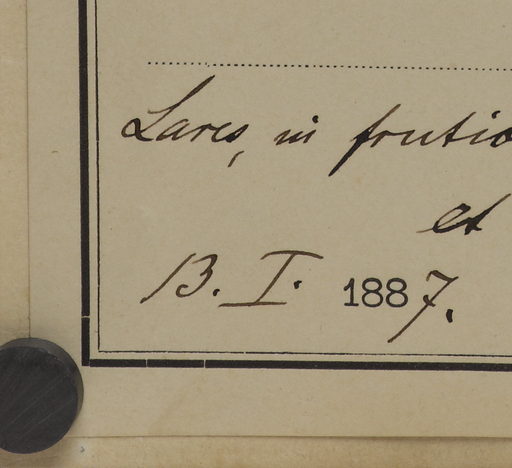 Lares, in frutic
et
13. I. 1887.